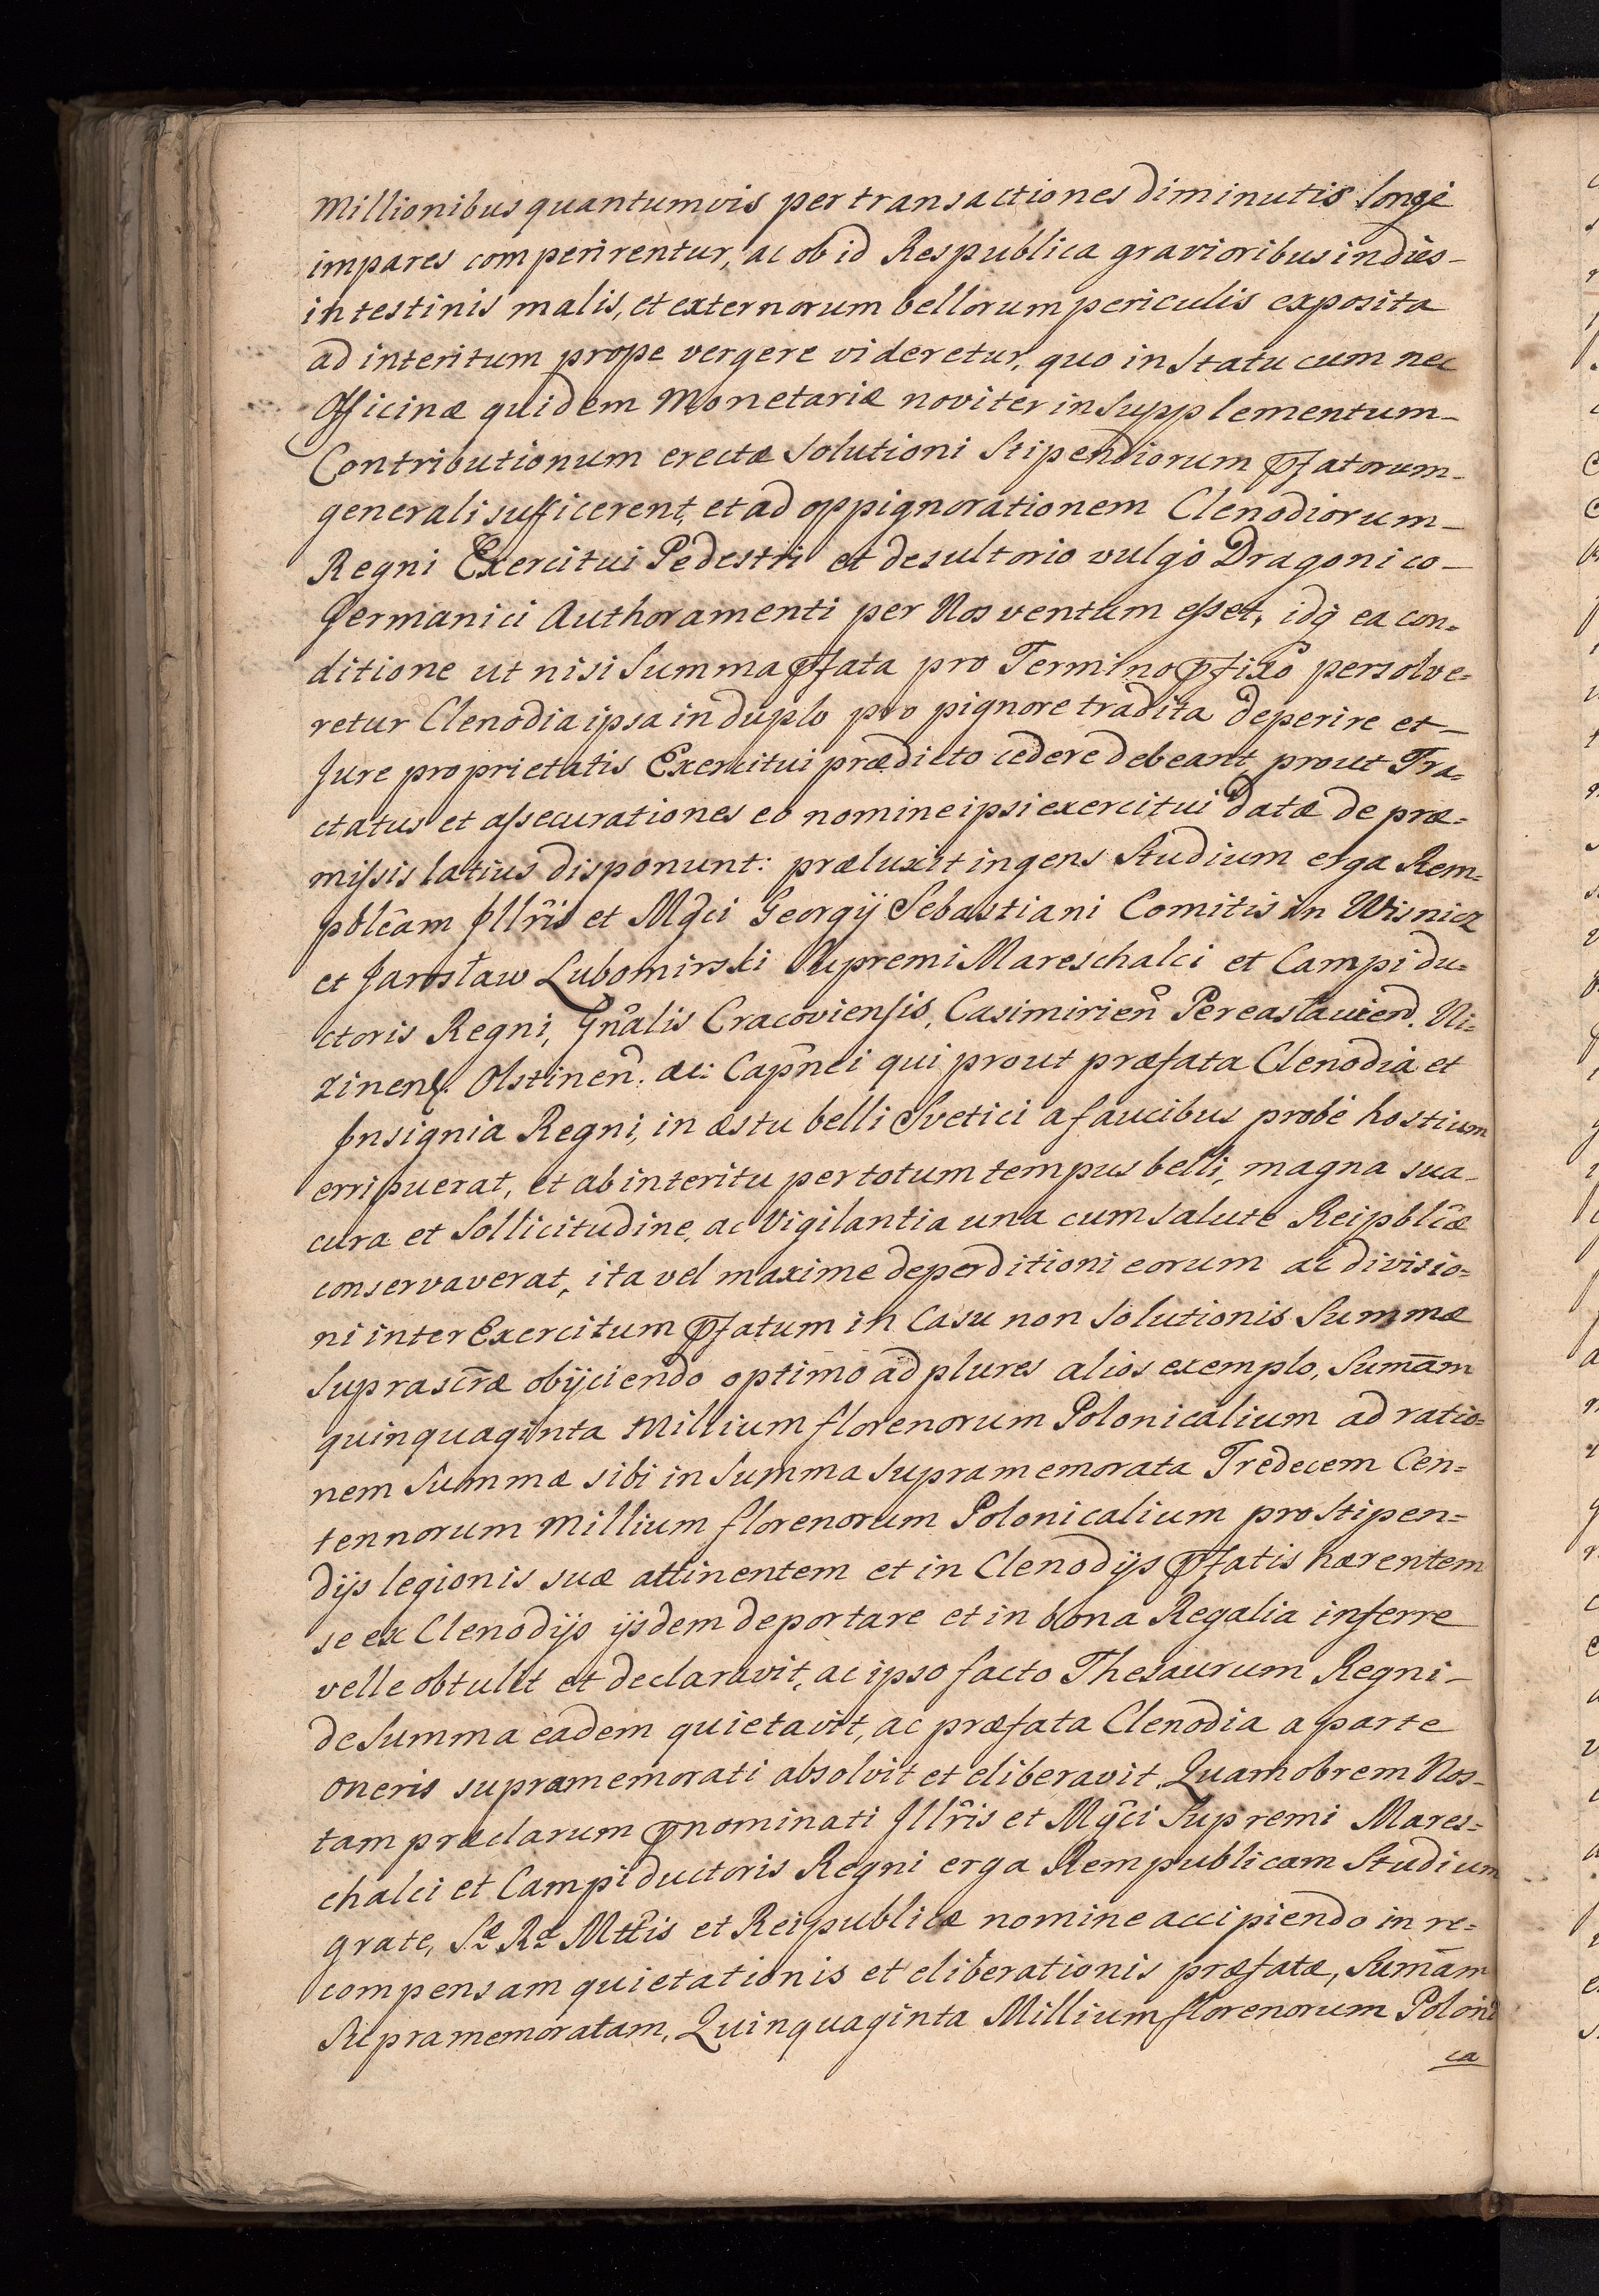 Millionibus quantumvis per transactiones diminutis longè
impares comperirentur, ac ob id Respublica gravioribus indies-
intestinis malis, et externorum bellorum periculis exposita
ad interitum prope vergere videretur, quo in Statu cum nec
Officinæ quidem Monetariæ noviter in Supplementum-
Contributionum erectæ Solutioni Stipendiorum p̄fatorum-
generali sufficerent, et ad oppignorationem Clenodiorum-
Regni Exercitui Pedestri et desultorio vulgò Dragonico-
Germanici Authoramenti per Nos ventum esset, idq̀ ea con=
ditione ut nisi Summa p̄fata pro Termino p̄fixo persolve=
retur Clenodia ipsa in duplo pro pignore tradita deperire et-
Jure proprietatis Exercitui prædicto cedere debeant prout Tra=
ctatus et assecurationes eo nomine ipsi exercitui datæ de præ=
missis latius disponunt: præluxit ingens Studium erga Rem=
pblcam Jllris et Mgci Georgij Sebastiani Comitis in Wisnicz
et Jarosław Lubomirski Supremi Mareschalci et Campidu=
ctoris Regni, Gnalis Cracoviensis, Casimirien Pereaslavien. Ni=
zinen. Olstinen. ac: Capnei qui prout præfata Clenodia et
Insignia Regni, in æstu belli Svetici a faucibus probè hostium
erripuerat, et ab interitu per totum tempus belli, magna sua-
cura et Sollicitudine, ac Vigilantia una cum salute Reipblcæ
conservaverat, ita vel maxime deperditioni eorum ac divisio=
ni inter Exercitum p̄fatum in Casu non Solutionis Summæ
Suprascræ obijciendo optimo ad plures alios exemplo, Sumām
quinquaginta Millium florenorum Polonicalium ad ratio=
nem Summæ sibi in Summa Supramemorata Tredecem Cen=
tennorum Millium florenorum Polonicalium pro Stipen=
dijs legionis suæ attinentem et in Clenodijs p̄fatis hærentem
se ex Clenodijs ijsdem deportare et in bona Regalia inferre
velle obtulit et declaravit, ac ipso facto Thesaurum Regni-
de Summa eadem quietavit, ac præfata Clenodia a parte
oneris supramemorati absolvit et eliberavit. Quamobrem Nos-
tam præclarum p̄nominati Jllris et Mgci Supremi Mares=
chalci et Campiductoris Regni erga Rempublicam Studium
grate, Sæ Ræ Mttis et Reipublicæ nomine accipiendo in re=
compensam quietationis et eliberationis præfatæ, Sumām
Supramemoratam, Quinquaginta Millium florenorum Poloni
ca